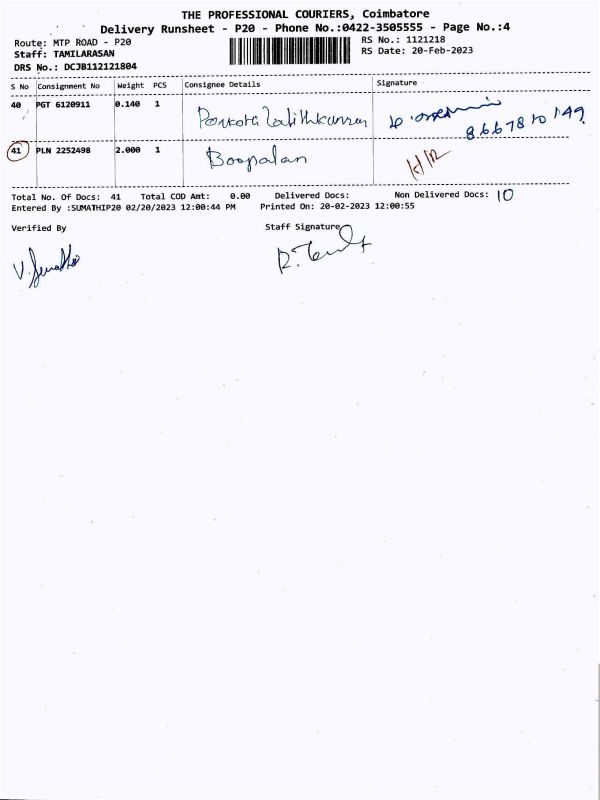 THE PROFESSIONAL COURIERS, Coimbatore
Delivery Runsheet - P20 - Phone No.:0422-3505555 - Page No.:4
Route: MTP ROAD - P20
RS No.: 1121218
Staff: TAMILARASAN
RS Date: 20-Feb-2023
DRS No.: DCJB112121804
S No Consignment No Weight PCS Consignee Details Signature
40 PGT 6120911 0.140 1
8667810149
41 PLN 2252498 2.000 1 Boopalan
Total No. Of Docs: 41 Total COD Amt: 0.00 Delivered Docs: Non Delivered Docs: 10
Entered By :SUMATHIP20 02/20/2023 12:00:44 PM Printed On: 20-02-2023 12:00:55
Verified By Staff Signature